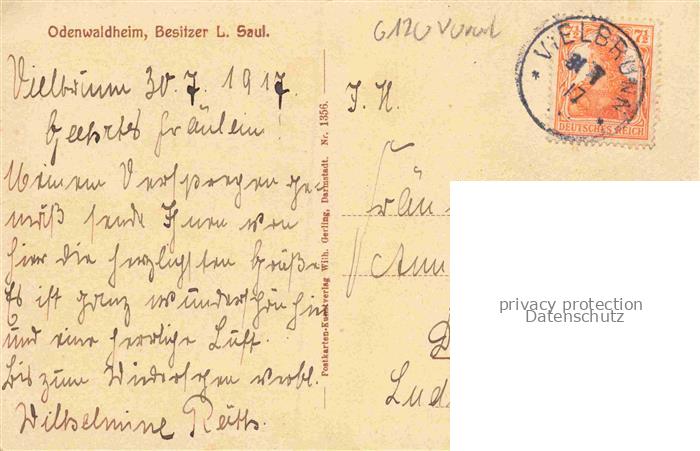 Odenwaldheim, Besitzer L. Saul.
Vielbrunn 30.7.1917.
Geehrtes Fräulein!
Meinem Versprechen ge-
mäß sende Ihnen von
hier die herzlichsten Grüße
Es ist ganz wunderschön hier
und eine herrliche Luft.
Bis zum Wiedersehen verbl.
Wilhelmine
Postkarten-Kunstverlag Wilh. Gerling, Darmstadt. Nr. 1356.
6120
VIELBRUNN
17
7½
DEUTSCHES REICH
Fräu
Lud
privacy protection
Datenschutz